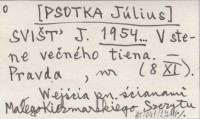 [PSOTKA Július]
SVIŠŤ J. 1954... V ste-
ne večného tieňa.
Pravda, nr (8 XI).
Wejścia pn. ścianami
Małego Kieżmarskiego Szczytu